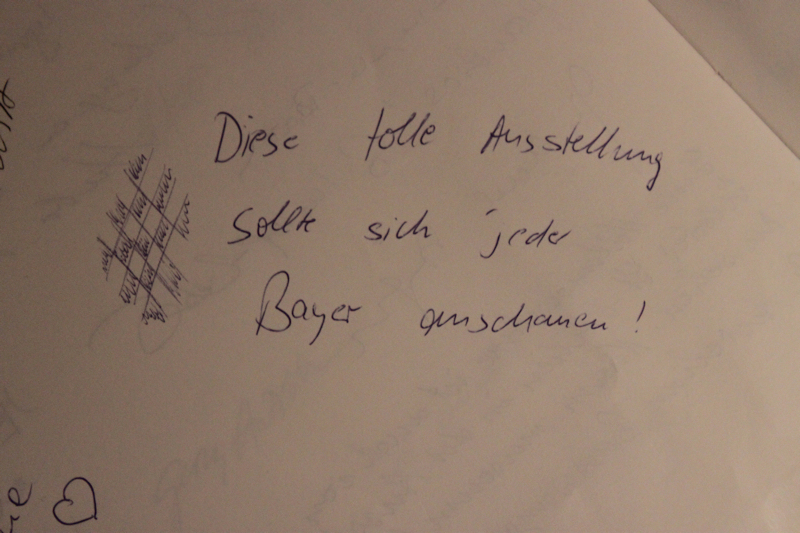 Diese tolle Ausstellung
sollte sich jeder
Bayer anschauen!